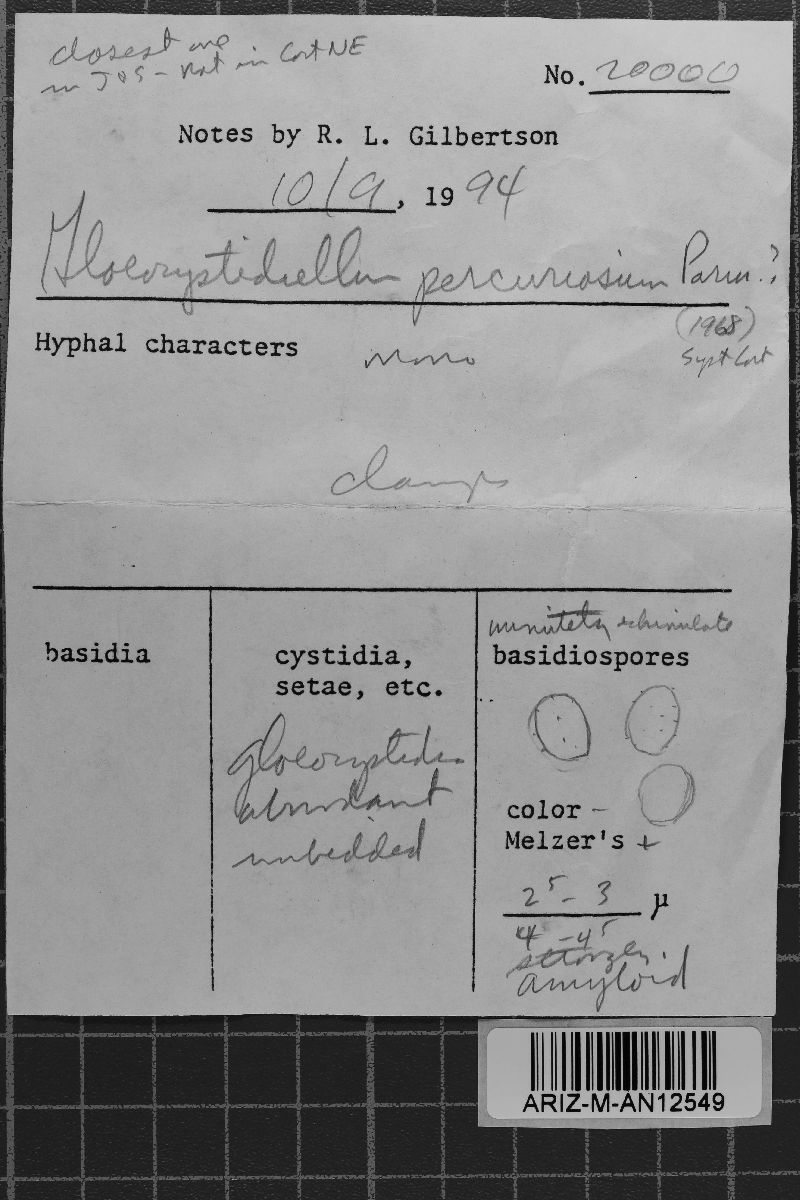 closest one
in JOS - not in Cort NE
No. 20000
Notes by R. L. Gilbertson
10/9, 19 94
Gloeocystidiellum percuriosum Parm.?
(1968)
Syst Cort
Hyphal characters mono
clamps
basidia
cystidia,
setae, etc.
gloeocystidia
abundant
imbedded
minutely echinulate
basidiospores
color -
Melzer's +
2⁵ - 3 μ
4 - 4⁵
strongly
amyloid
ARIZ-M-AN12549